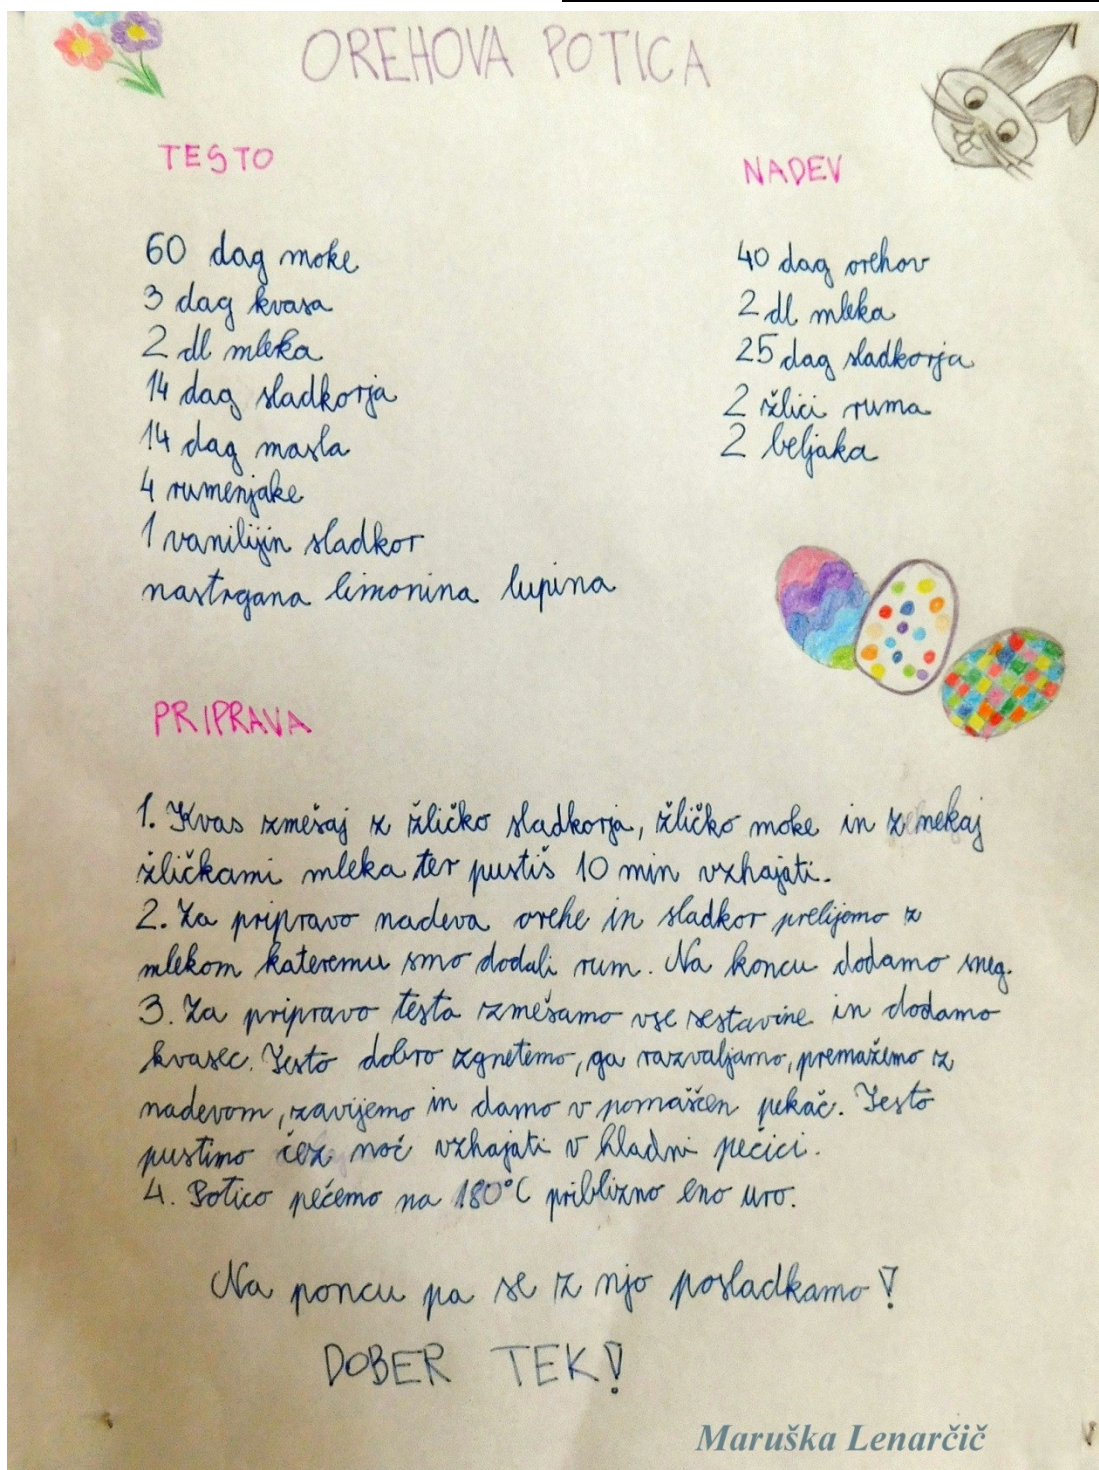 OREHOVA POTICA
TESTO
60 dag moke
3 dag kvasa
2 dl mleka
14 dag sladkorja
14 dag masla
4 rumenjake
1 vanilijin sladkor
nastrgana limonina lupina
NADEV
40 dag orehov
2 dl mleka
25 dag sladkorja
2 žlici ruma
2 beljaka
PRIPRAVA
1. Kvas zmešaj z žličko sladkorja, žličko moke in z nekaj
žličkami mleka ter pustiš 10 min vzhajati.
2. Za pripravo nadeva orehe in sladkor prelijemo z
mlekom kateremu smo dodali rum. Na koncu dodamo sneg.
3. Za pripravo testa zmešamo vse sestavine in dodamo
kvasec. Testo dobro zgnetemo, ga razvaljamo, premažemo z
nadevom, zavijemo in damo v pomaščen pekač. Testo
pustimo čez noč vzhajati v hladni pečici.
4. Potico pečemo na 180°C približno eno uro.
Na poncu pa se z njo posladkamo!
DOBER TEK!
Maruška Lenarčič